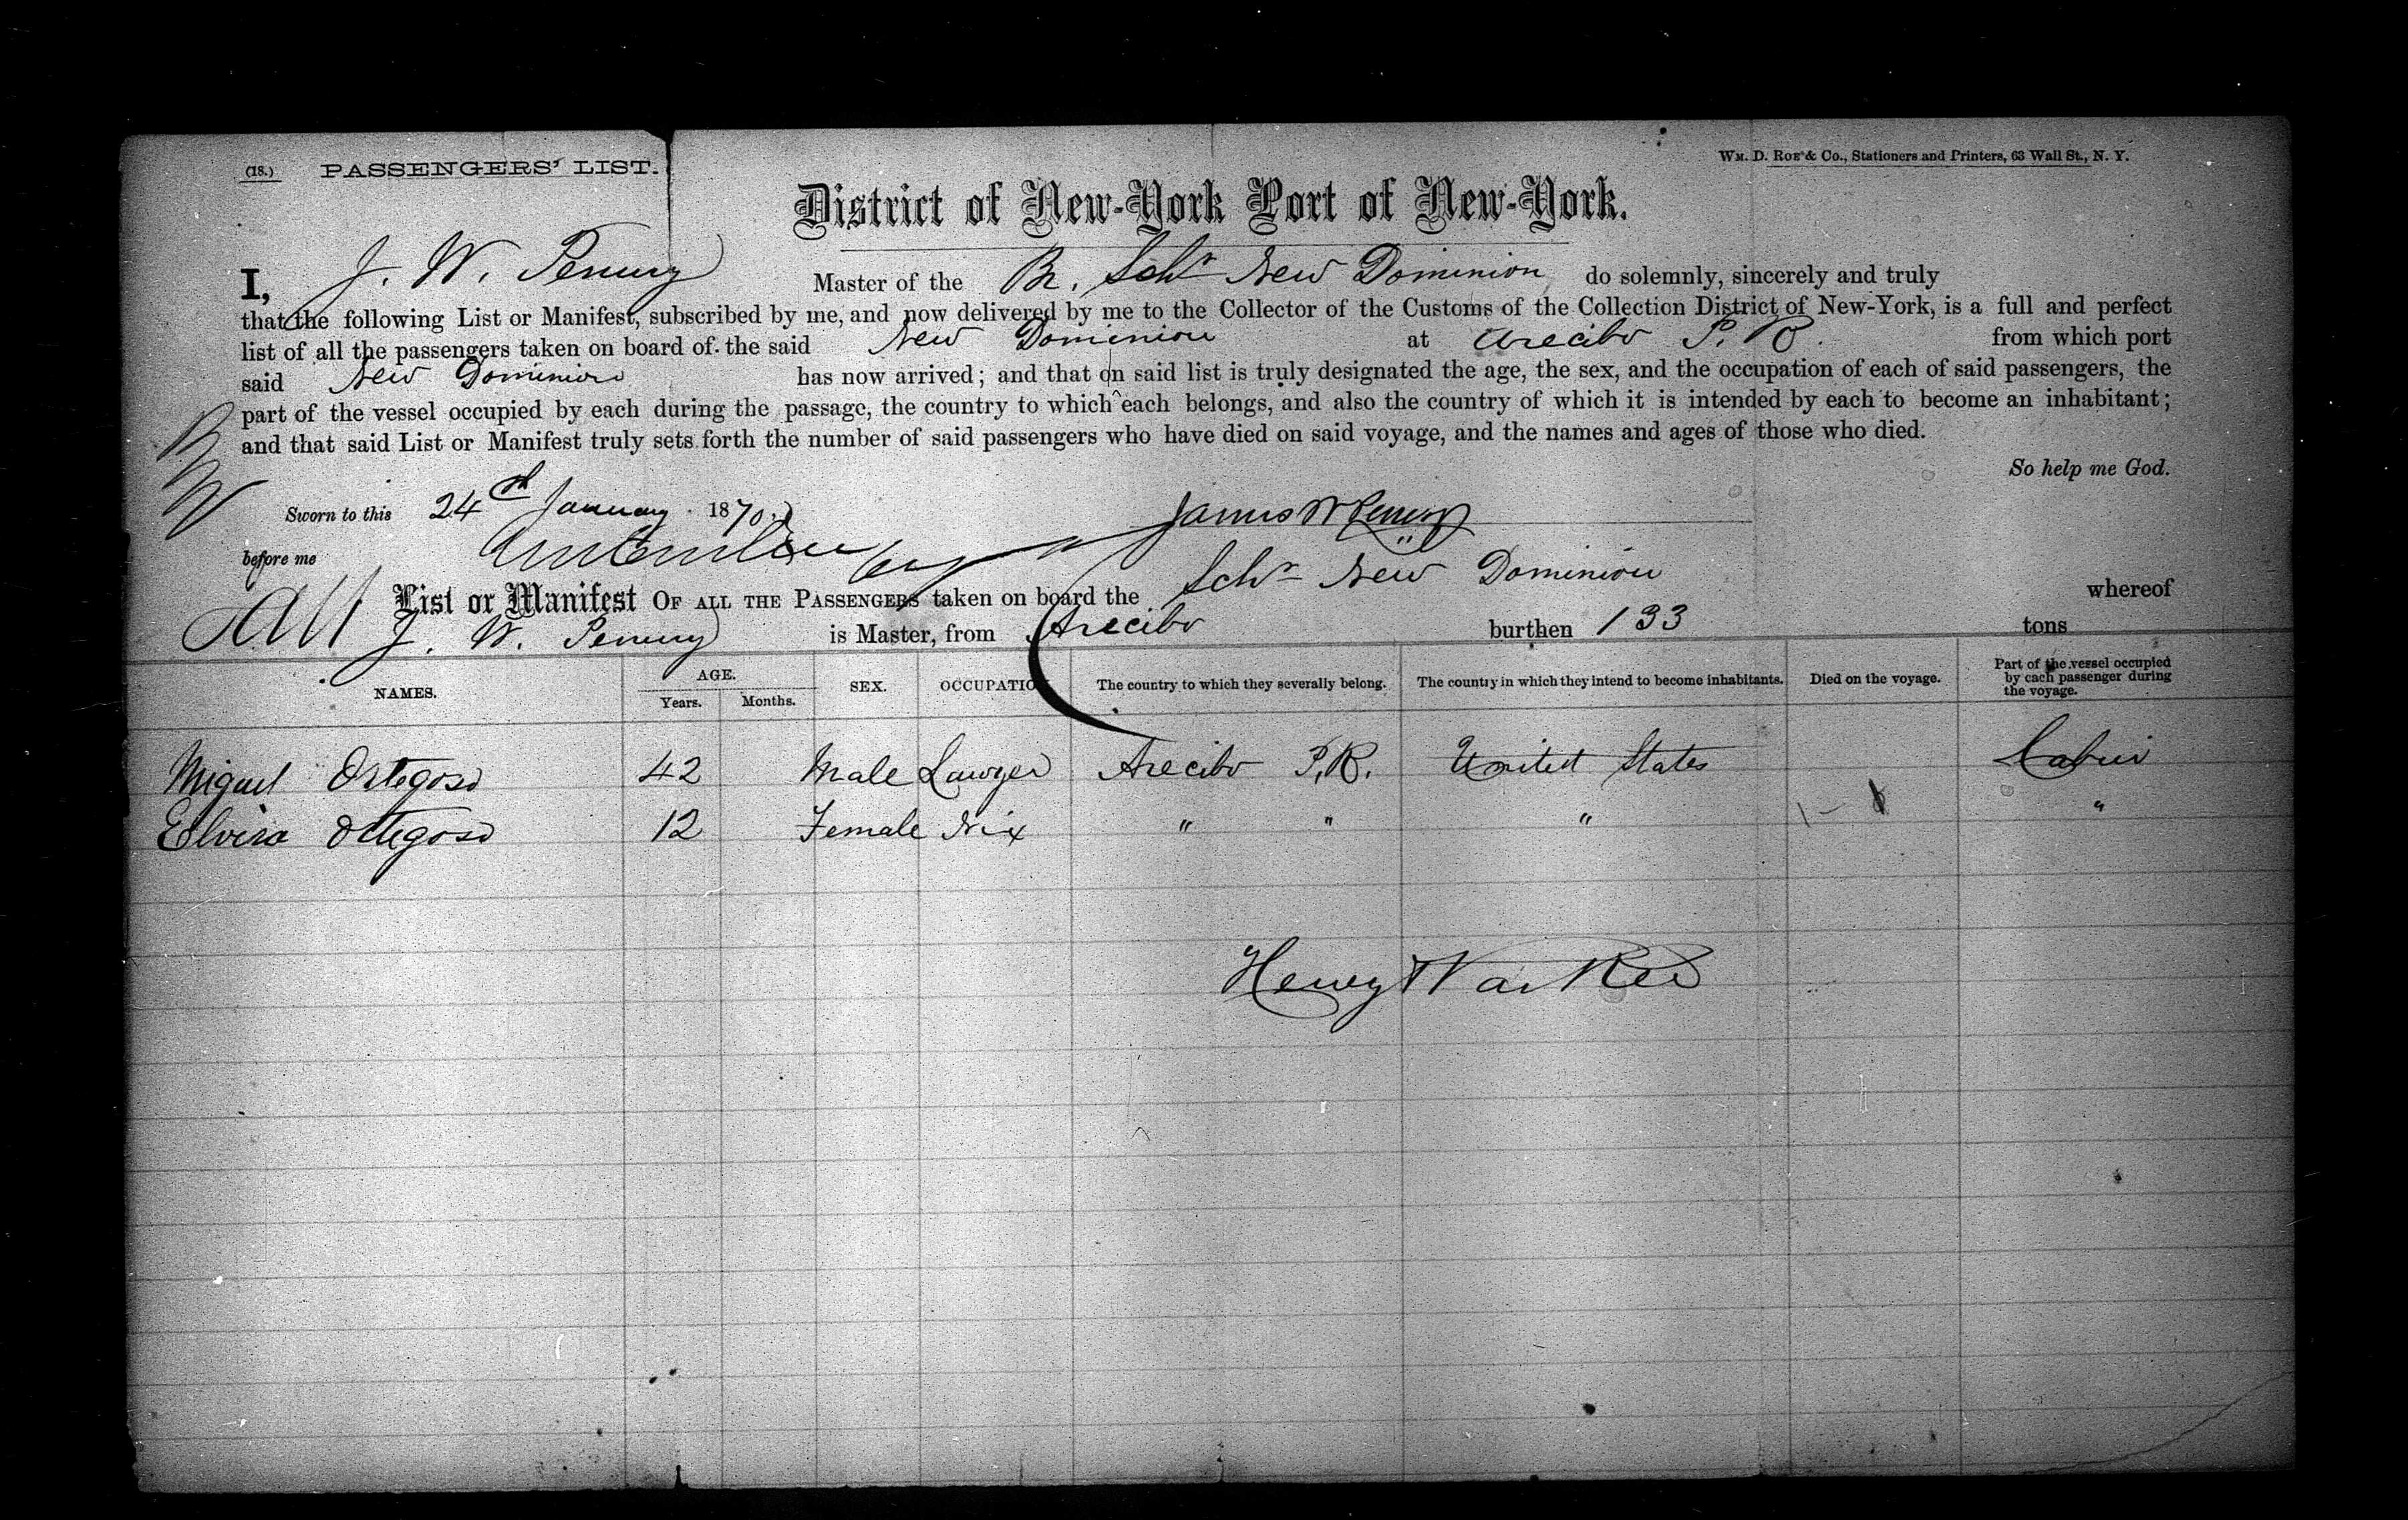 (18.) PASSENGERS' LIST.
WM. D. ROE & CO., Stationers and Printers, 63 Wall St., N. Y.
District of New-York Port of New-York.
I, J. W. Penny Master of the Br. Schr New Dominion do solemnly, sincerely and truly
that the following List or Manifest, subscribed by me, and now delivered by me to the Collector of the Customs of the Collection District of New-York, is a full and perfect
list of all the passengers taken on board of the said New Dominion at Arecibo P. R. from which port
said New Dominion has now arrived; and that on said list is truly designated the age, the sex, and the occupation of each of said passengers, the
part of the vessel occupied by each during the passage, the country to which each belongs, and also the country of which it is intended by each to become an inhabitant;
and that said List or Manifest truly sets forth the number of said passengers who have died on said voyage, and the names and ages of those who died.
So help me God.
Sworn to this 24th January 1870. James W Penny
before me
List or Manifest OF ALL THE PASSENGERS taken on board the Schr New Dominion whereof
J. W. Penny is Master, from Arecibo burthen 133 tons
NAMES. AGE. Years. Months. SEX. OCCUPATIO The country to which they severally belong. The country in which they intend to become inhabitants. Died on the voyage. Part of the vessel occupied by each passenger during the voyage.
Miguel Ortegoso 42 Male Lawyer Arecibo P.R. United States Cabin
Elvira Ortegoso 12 Female Nix " " " "
Henry Warker